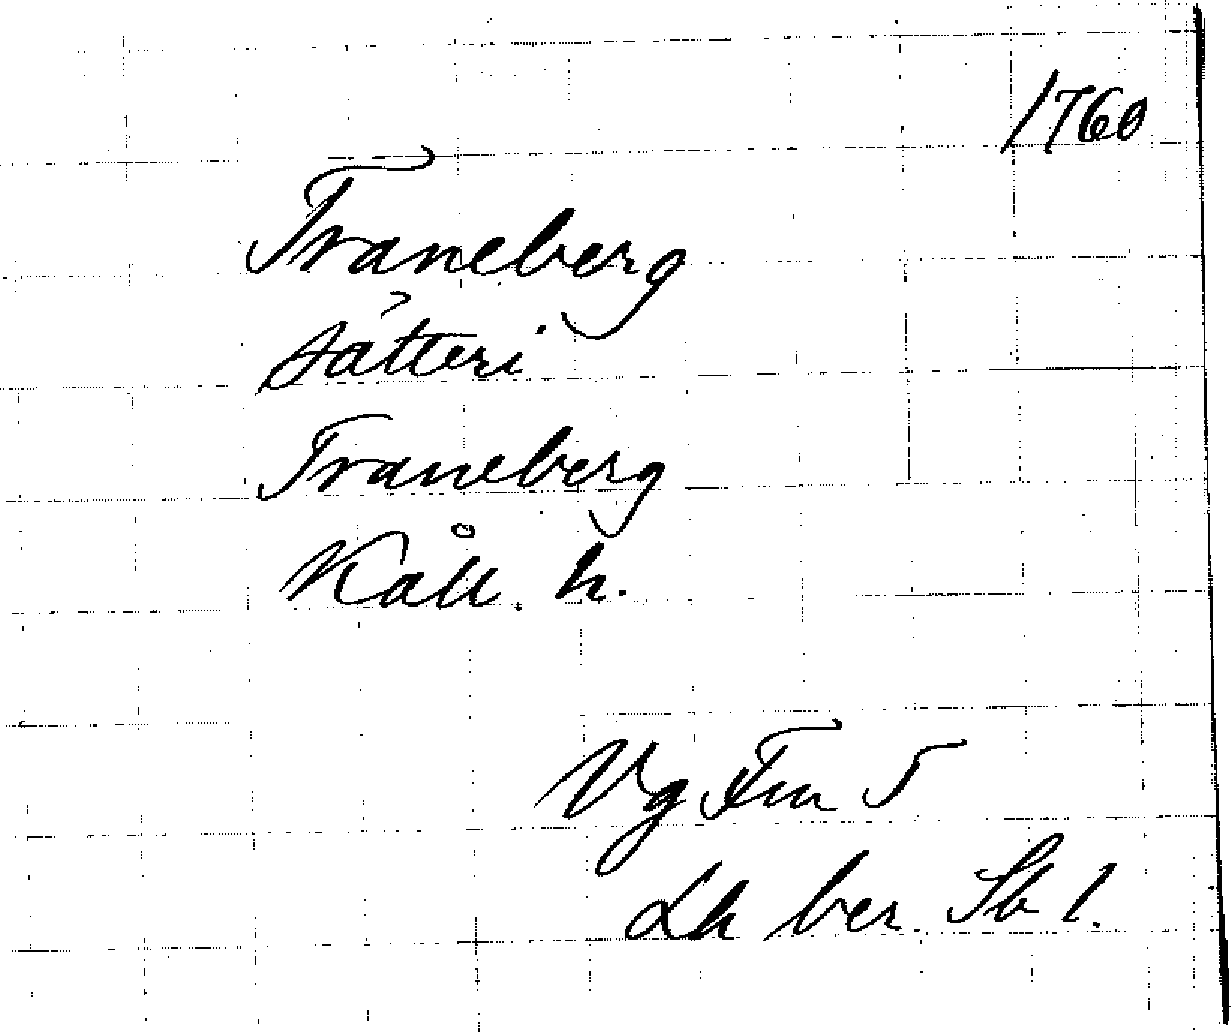 1760
Traneberg
sätteri
Traneberg
Kåll. h.
Vg Fm 5
Lh ber. Sk 1.